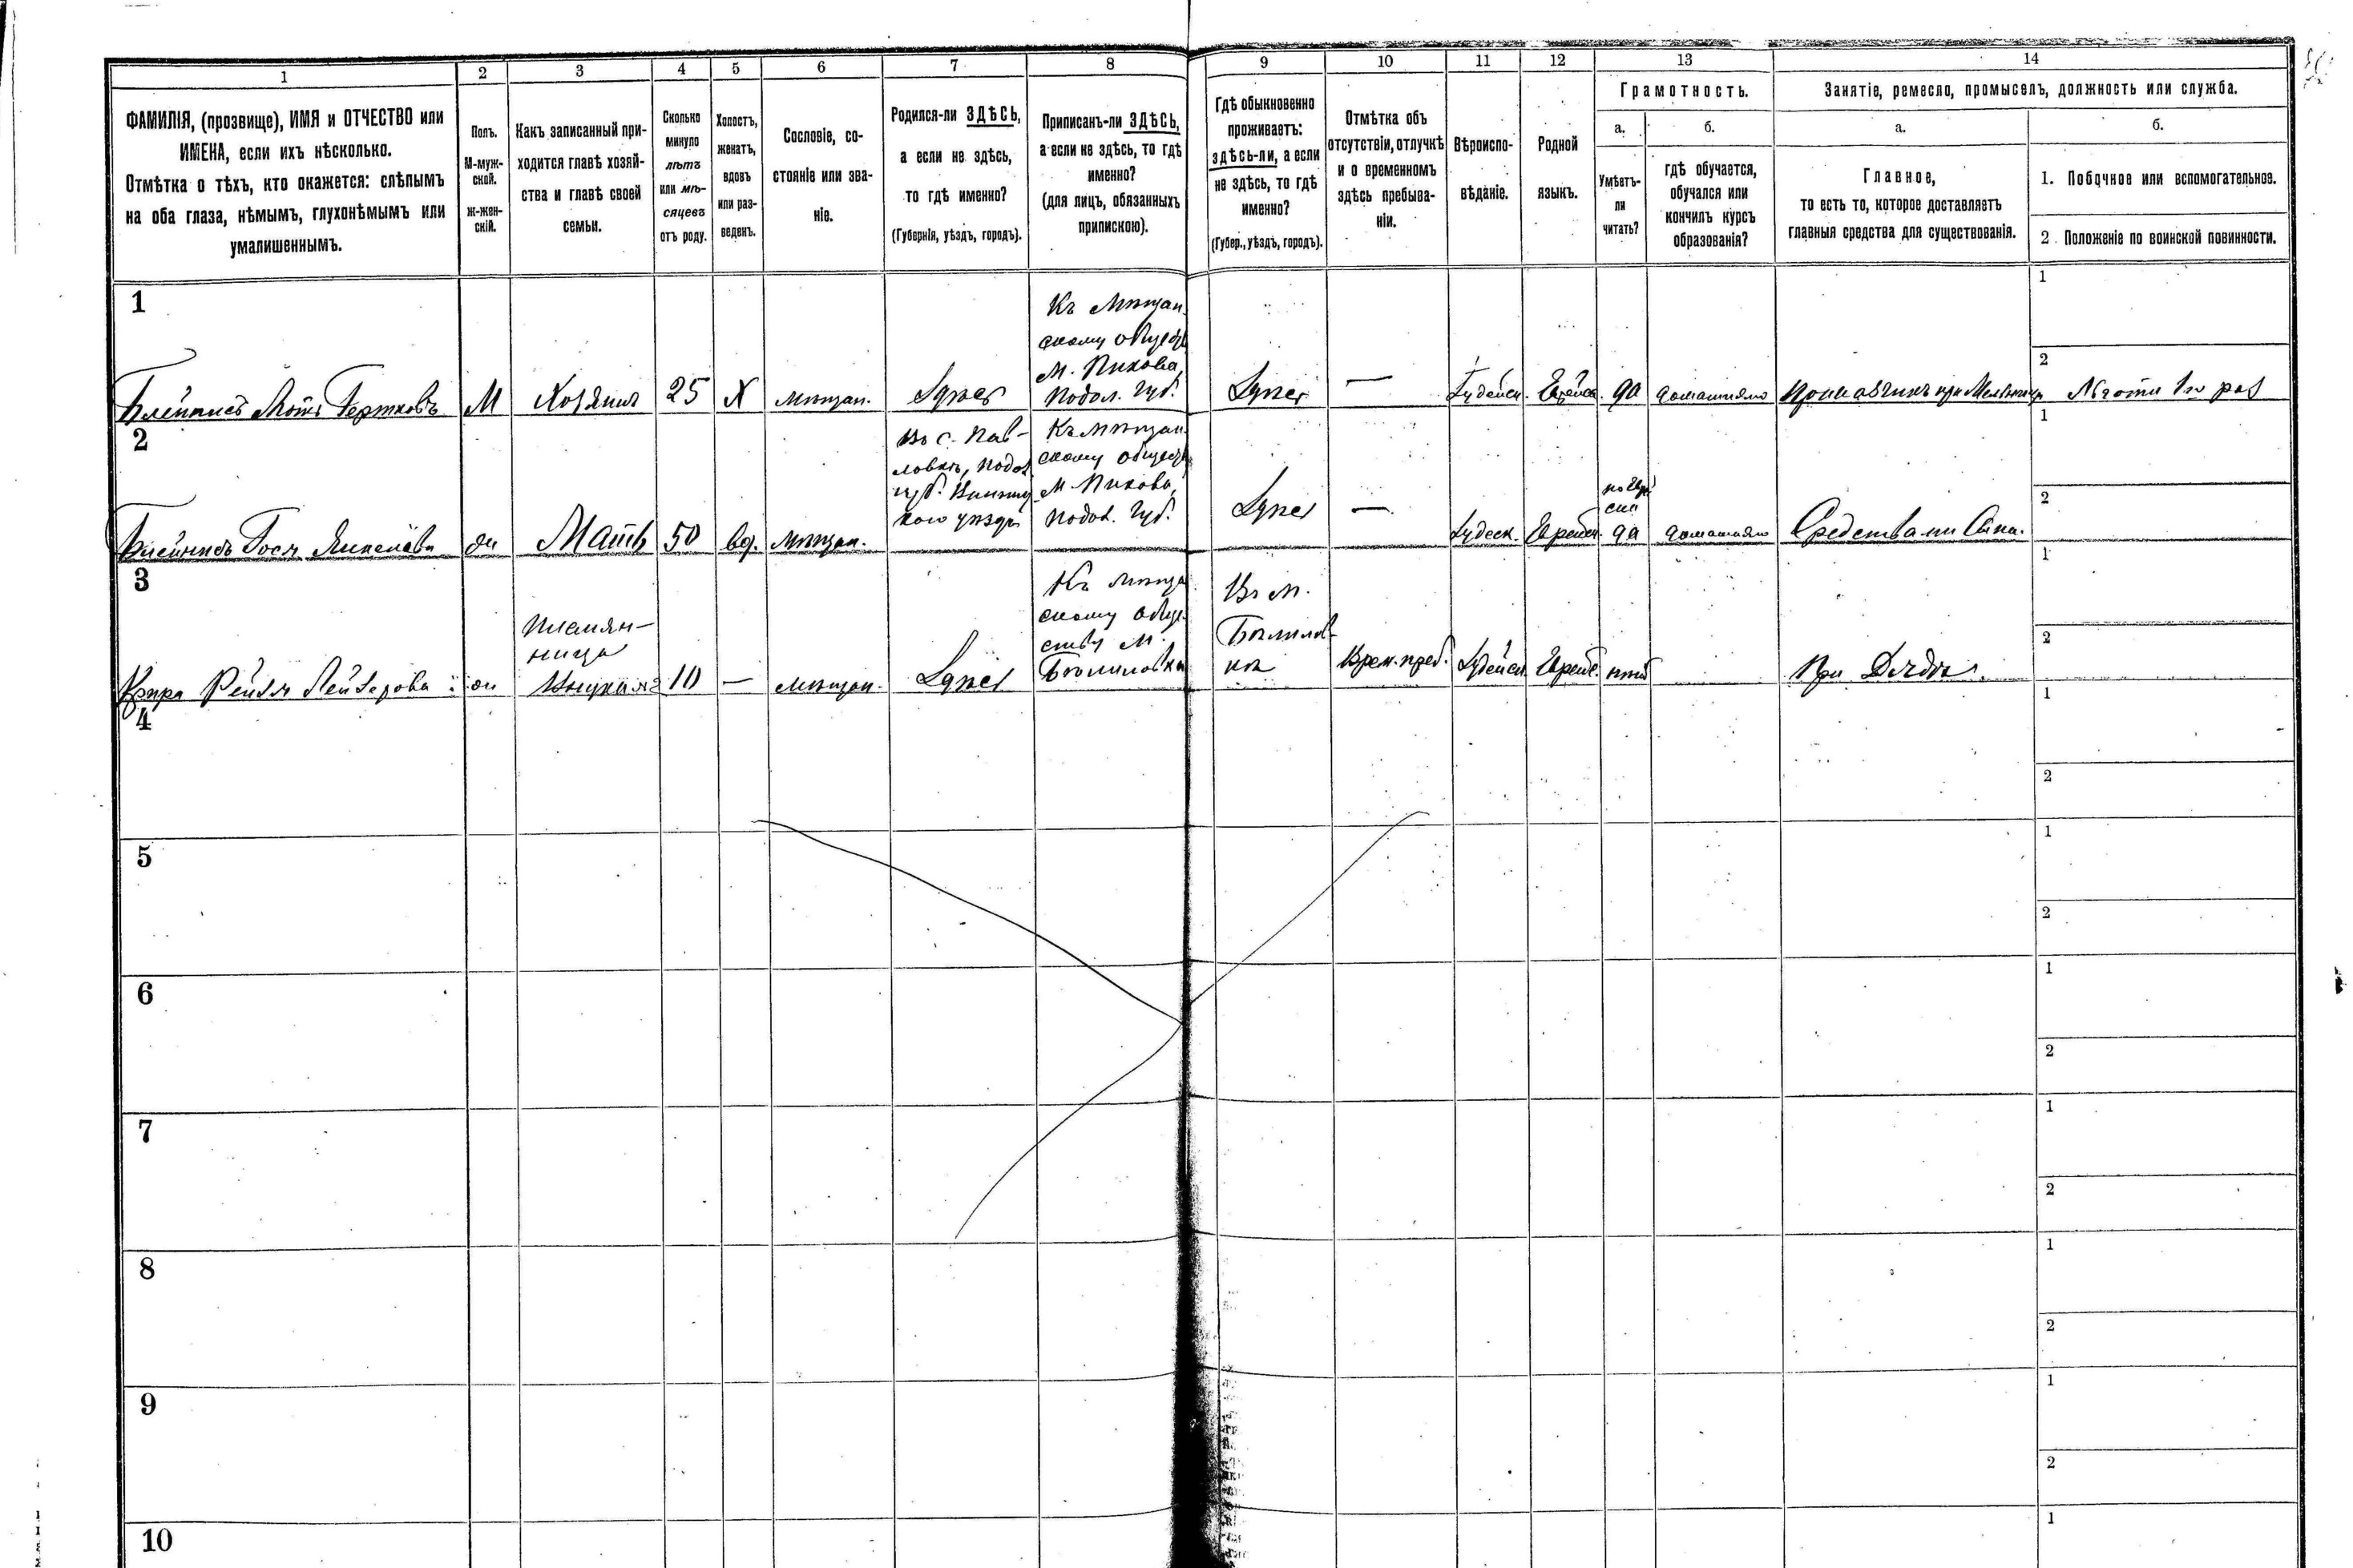 1
2
3
4
5
6
7
8
9
10
11
12
13
14
ФАМИЛІЯ, (прозвище), ИМЯ и ОТЧЕСТВО или
ИМЕНА, если ихъ нѣсколько.
Отмѣтка о тѣхъ, кто окажется: слѣпымъ
на оба глаза, нѣмымъ, глухонѣмымъ или
умалишеннымъ.
Полъ.
М-муж-
ской.
Ж-жен-
скій.
Какъ записанный при-
ходится главѣ хозяй-
ства и главѣ своей
семьи.
Сколько
минуло
лѣтъ
или мѣ-
сяцевъ
отъ роду.
Холостъ,
женатъ,
вдовъ
или раз-
веденъ.
Сословіе, со-
стояніе или зва-
ніе.
Родился-ли ЗДѢСЬ,
а если не здѣсь,
то гдѣ именно?
(Губернія, уѣздъ, городъ).
Приписанъ-ли ЗДѢСЬ,
а если не здѣсь, то гдѣ
именно?
(для лицъ, обязанныхъ
припискою).
Гдѣ обыкновенно
проживаетъ:
здѣсь-ли, а если
не здѣсь, то гдѣ
именно?
(Губер., уѣздъ, городъ).
Отмѣтка объ
отсутствіи, отлучкѣ
и о временномъ
здѣсь пребыва-
ніи.
Вѣроиспо-
вѣданіе.
Родной
языкъ.
Грамотность.
а.
Умѣетъ-
ли
читать?
б.
гдѣ обучается,
обучался или
кончилъ курсъ
образованія?
Занятіе, ремесло, промыселъ, должность или служба.
а.
Главное,
то есть то, которое доставляетъ
главныя средства для существованія.
б.
1. Побочное или вспомогательное.
2. Положеніе по воинской повинности.
1
Мотъ Гершковъ
М
Хозяинъ
25
Х
мѣщан.
Здѣсь
Къ Мѣщан
скому общест
М. Пикова,
Подол. Губ.
Здѣсь
—
Іудейск.
Еврейск.
да
домашнее
при Мельницѣ
1
2
Льгота 1го раз
2
Гося
ж
Мать
50
вд.
мѣщан.
Въ с. Пав-
ловкѣ, Подол
губ. Винниц
кого уѣзда
Къ мѣщан
скому общест
М. Пикова,
Подол. Губ.
Здѣсь
—
Іудеск.
Еврейск.
по Евр
ски
да
домашнее
Средствами Сына.
1
2
3
Рейзя Лейзерова
ж
Племян-
ница
Внучка
10
—
мѣщан.
Здѣсь
Къ мѣща
скому обще
ству М.
Бѣлиловка
Въ м.
Бѣлилов-
кѣ
Врем. преб.
Іудейск.
Еврейс.
нѣтъ
При Дядѣ.
1
2
4
1
2
5
1
2
6
1
2
7
1
2
8
1
2
9
1
2
10
1